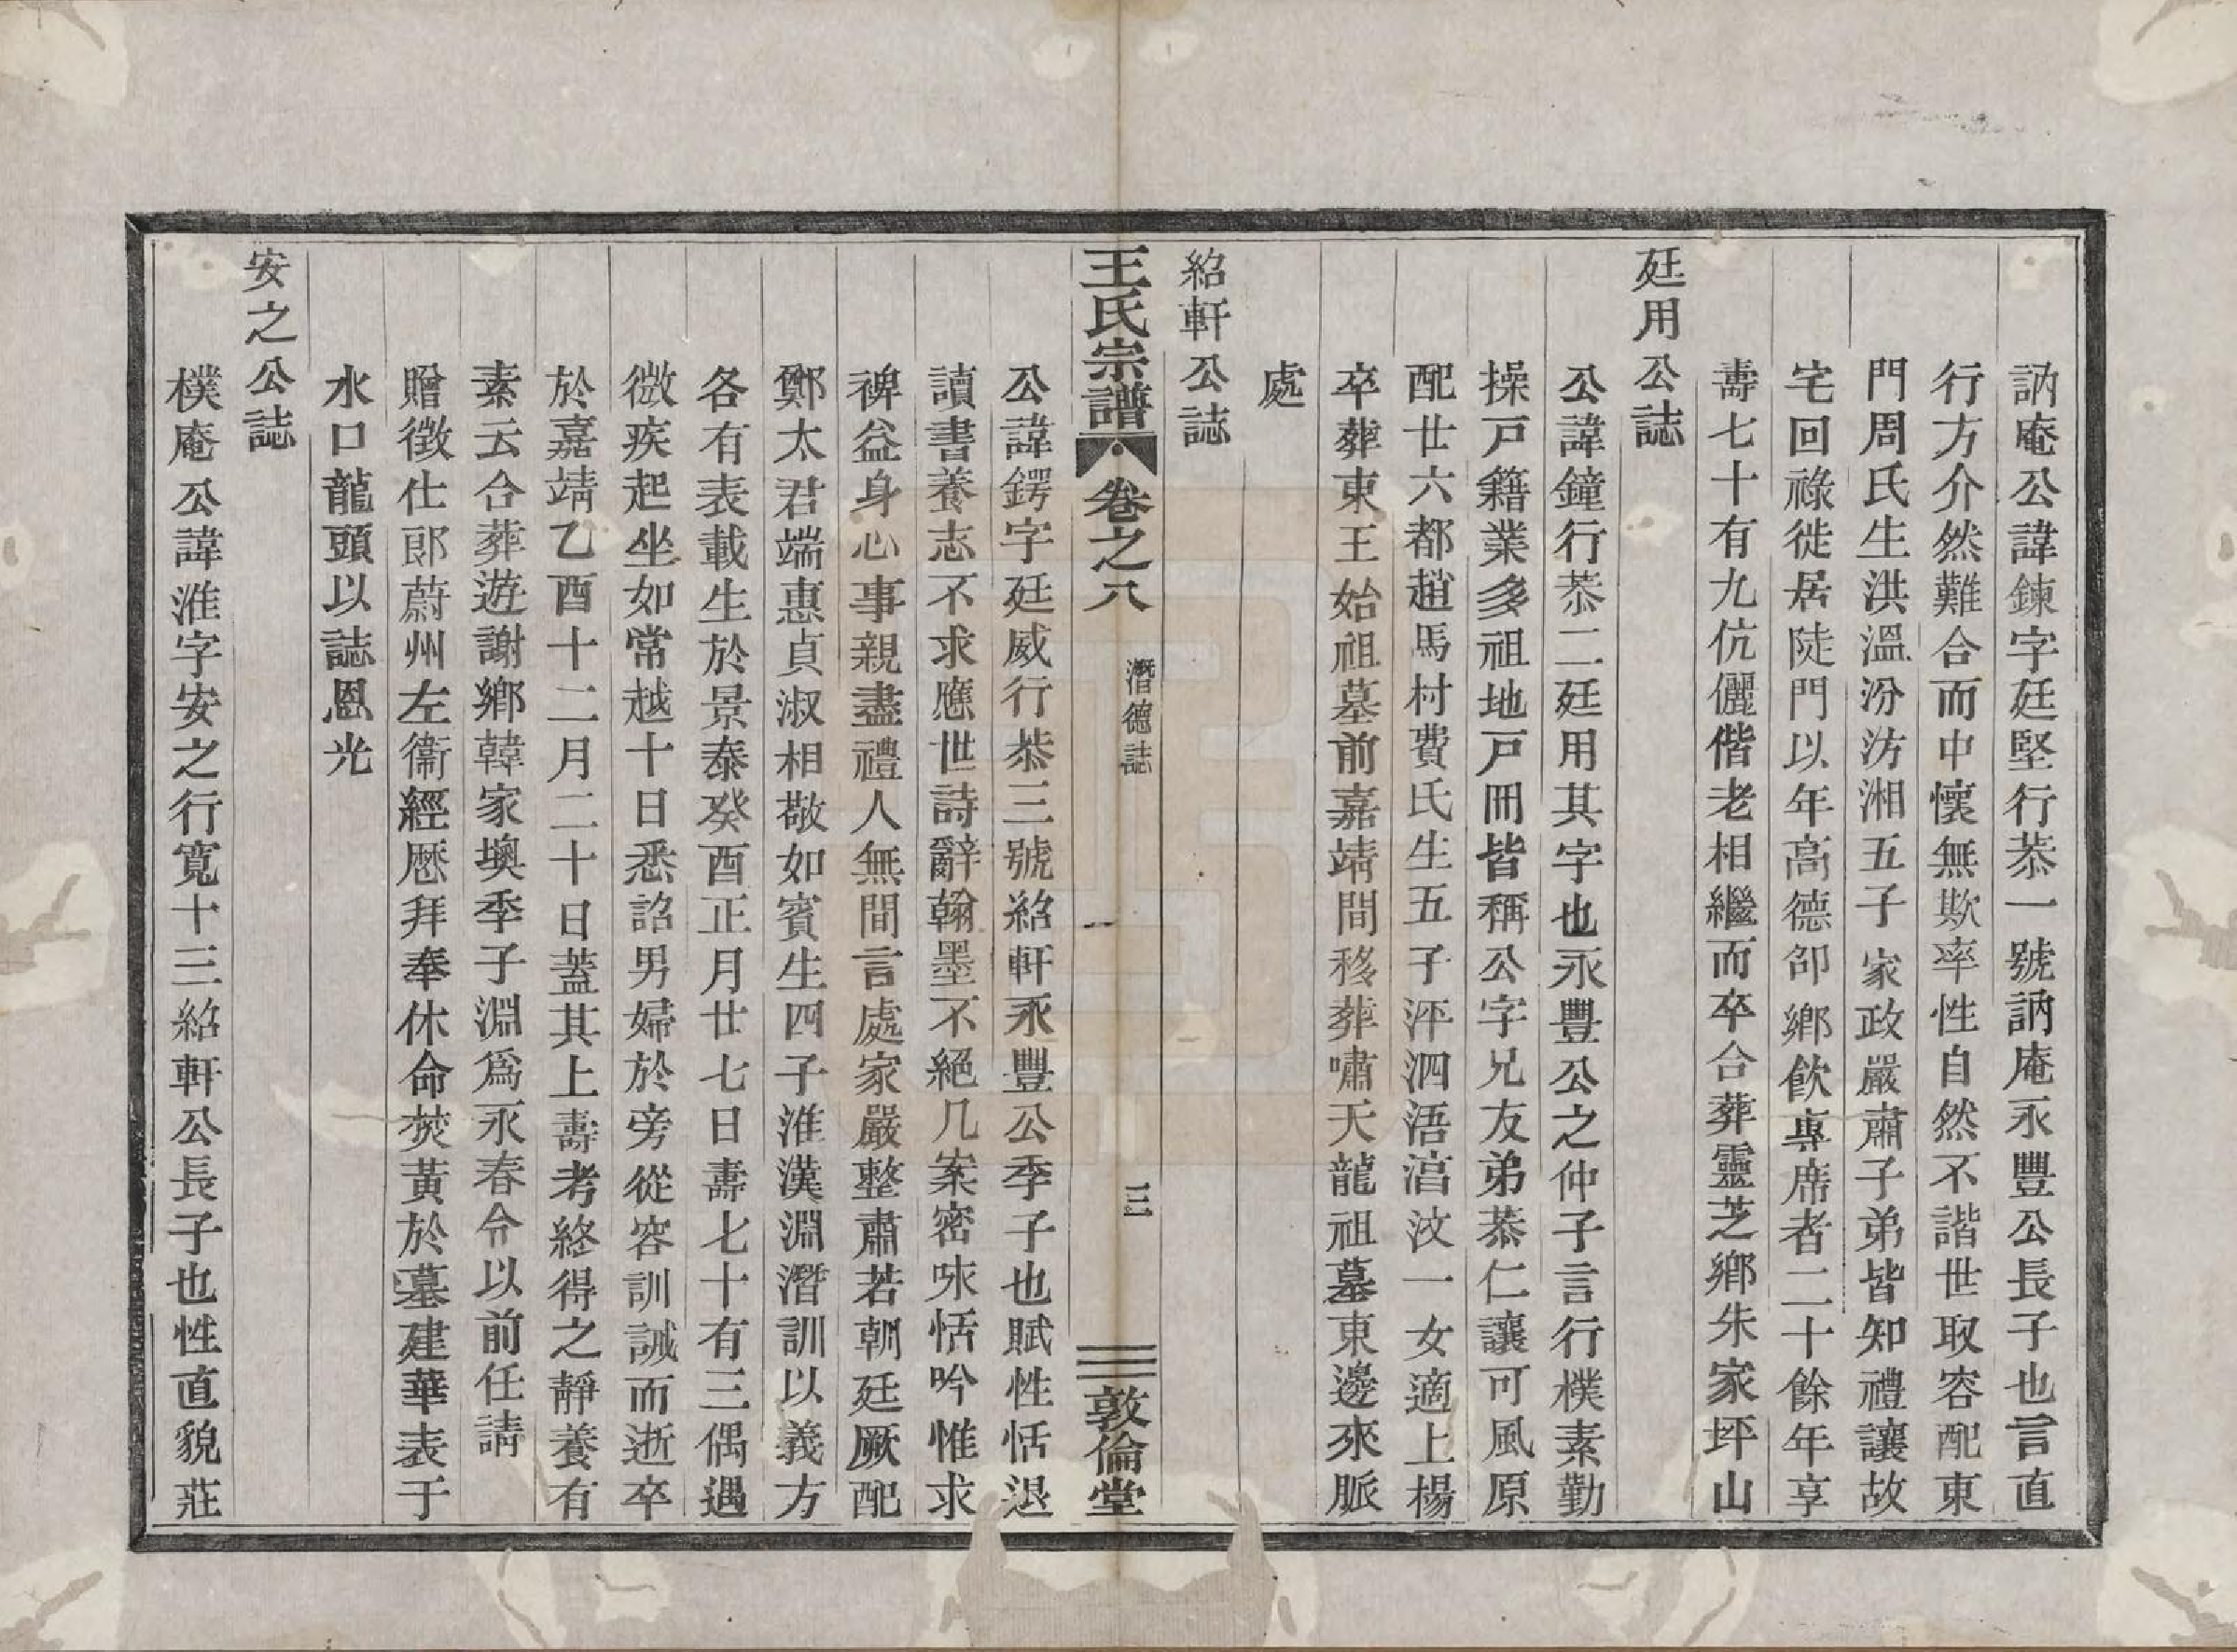 訥庵公諱鍊字廷堅行恭一號訥庵永豐公長子也言直
行方介然難合而中懷無欺率性自然不諧世取容配東
門周氏生洪溫汾汸湘五子家政嚴肅子弟皆知禮讓故
宅回祿徙居陡門以年高德卲鄉飲專席者二十餘年享
壽七十有九伉儷偕老相繼而卒合葬靈芝鄉朱家坪山
廷用公誌
公諱鐘行恭二廷用其字也永豐公之仲子言行樸素勤
操戸籍業多祖地戸冊皆稱公字兄友弟恭仁讓可風原
配廿六都趙馬村費氏生五子泙泗浯涫汶一女適上楊
卒葬東王始祖墓前嘉靖間移葬嘯天龍祖墓東邊來脈
處
紹軒公誌
王氏宗譜 卷之八 潛德誌 三 敦倫堂
公諱鍔字廷威行恭三號紹軒永豐公季子也賦性恬退
讀書養志不求應世詩辭翰墨不絕几案密咏恬吟惟求
裨益身心事親盡禮人無間言處家嚴整肅若朝廷厥配
鄭太君端惠貞淑相敬如賓生四子淮漢淵潛訓以義方
各有表載生於景泰癸酉正月廿七日壽七十有三偶遇
微疾起坐如常越十日悉詔男婦於旁從容訓誡而逝卒
於嘉靖乙酉十二月二十日蓋其上壽考終得之靜養有
素云合葬遊謝鄉韓家墺季子淵爲永春令以前任請
贈徵仕郎蔚州左衞經歷拜奉休命焚黃於墓建華表于
水口龍頭以誌恩光
安之公誌
樸庵公諱淮字安之行寬十三紹軒公長子也性直貌莊